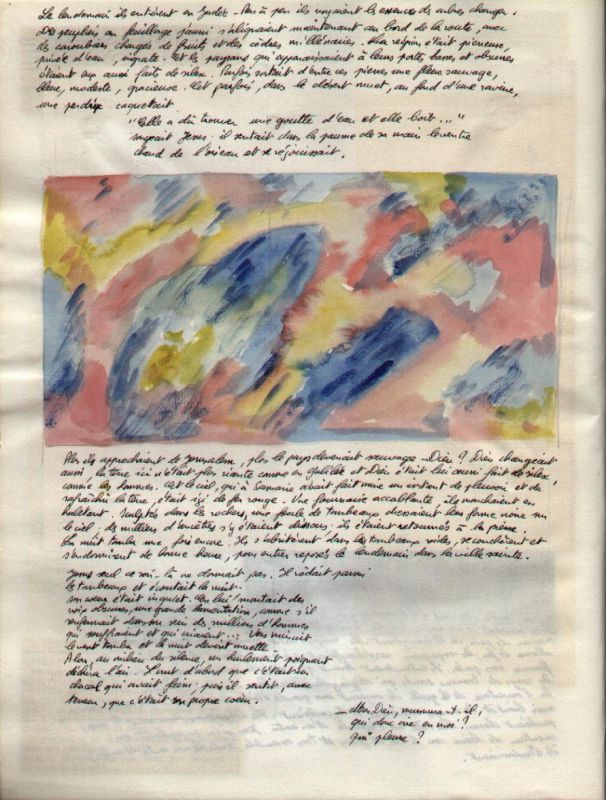 Le lendemain ils entrèrent en Judée. Peu à peu ils voyaient les essences des arbres changer.
Des peupliers au feuillage jauni s'alignaient maintenant au bord de la route, avec
des caroubiers chargés de fruits et des cèdres millénaires. La région était pierreuse,
privée d'eau, ingrate. Et les paysans qui apparaissaient à leurs portes basses et obscures
étaient eux aussi faits de silex. Parfois sortait d'entre ces pierres une fleur sauvage,
bleue, modeste, gracieuse. Et parfois, dans le désert muet, au fond d'une ravine,
une perdrix caquetait.
"Elle a dû trouver une goutte d'eau et elle boit..."
songeait Jésus : il sentait dans la paume de sa main le ventre
chaud de l'oiseau et se réjouissait.
Plus ils approchaient de Jerusalem, plus le pays devenait sauvage. Dieu ? Dieu changeait
aussi la terre ici n'était plus riante comme en Galilée et Dieu était lui aussi fait de silex,
comme les hommes. Et le ciel, qui à Samarie avait fait mine un instant de pleuvoir et de
rafraîchir la terre, était ici de fer rouge. Une fournaise accablante, ils marchaient en
haletant. Sculptés dans les rochers, une foule de tombeaux dressaient leur forme noire sur
le ciel : des milliers d'ancêtres s'y étaient dissous : ils étaient retournés à la pierre.
La nuit tomba une fois encore. Ils s'abritèrent dans les tombeaux vides, se couchèrent et
s'endormirent de bonne heure, pour entrer reposés le lendemain dans la ville sainte.
Jésus seul ce soir-là ne dormait pas. Il rôdait parmi
les tombeaux et écoutait la nuit.
son cœur était inquiet. En lui montait des
voix obscures, une grande lamentation, comme s'il
renfermait dans son sein des milliers d'hommes
qui souffraient et qui criaient... Vers minuit
le vent tomba et la nuit devint muette.
Alors, au milieu du silence, un hurlement poignant
déchira l'air. Il crut d'abord que c'était un
chacal qui avait faim, puis il sentit, avec
terreur, que c'était son propre cœur.
— Mon Dieu, murmura-t-il,
qui donc crie en moi ?
qui pleure ?